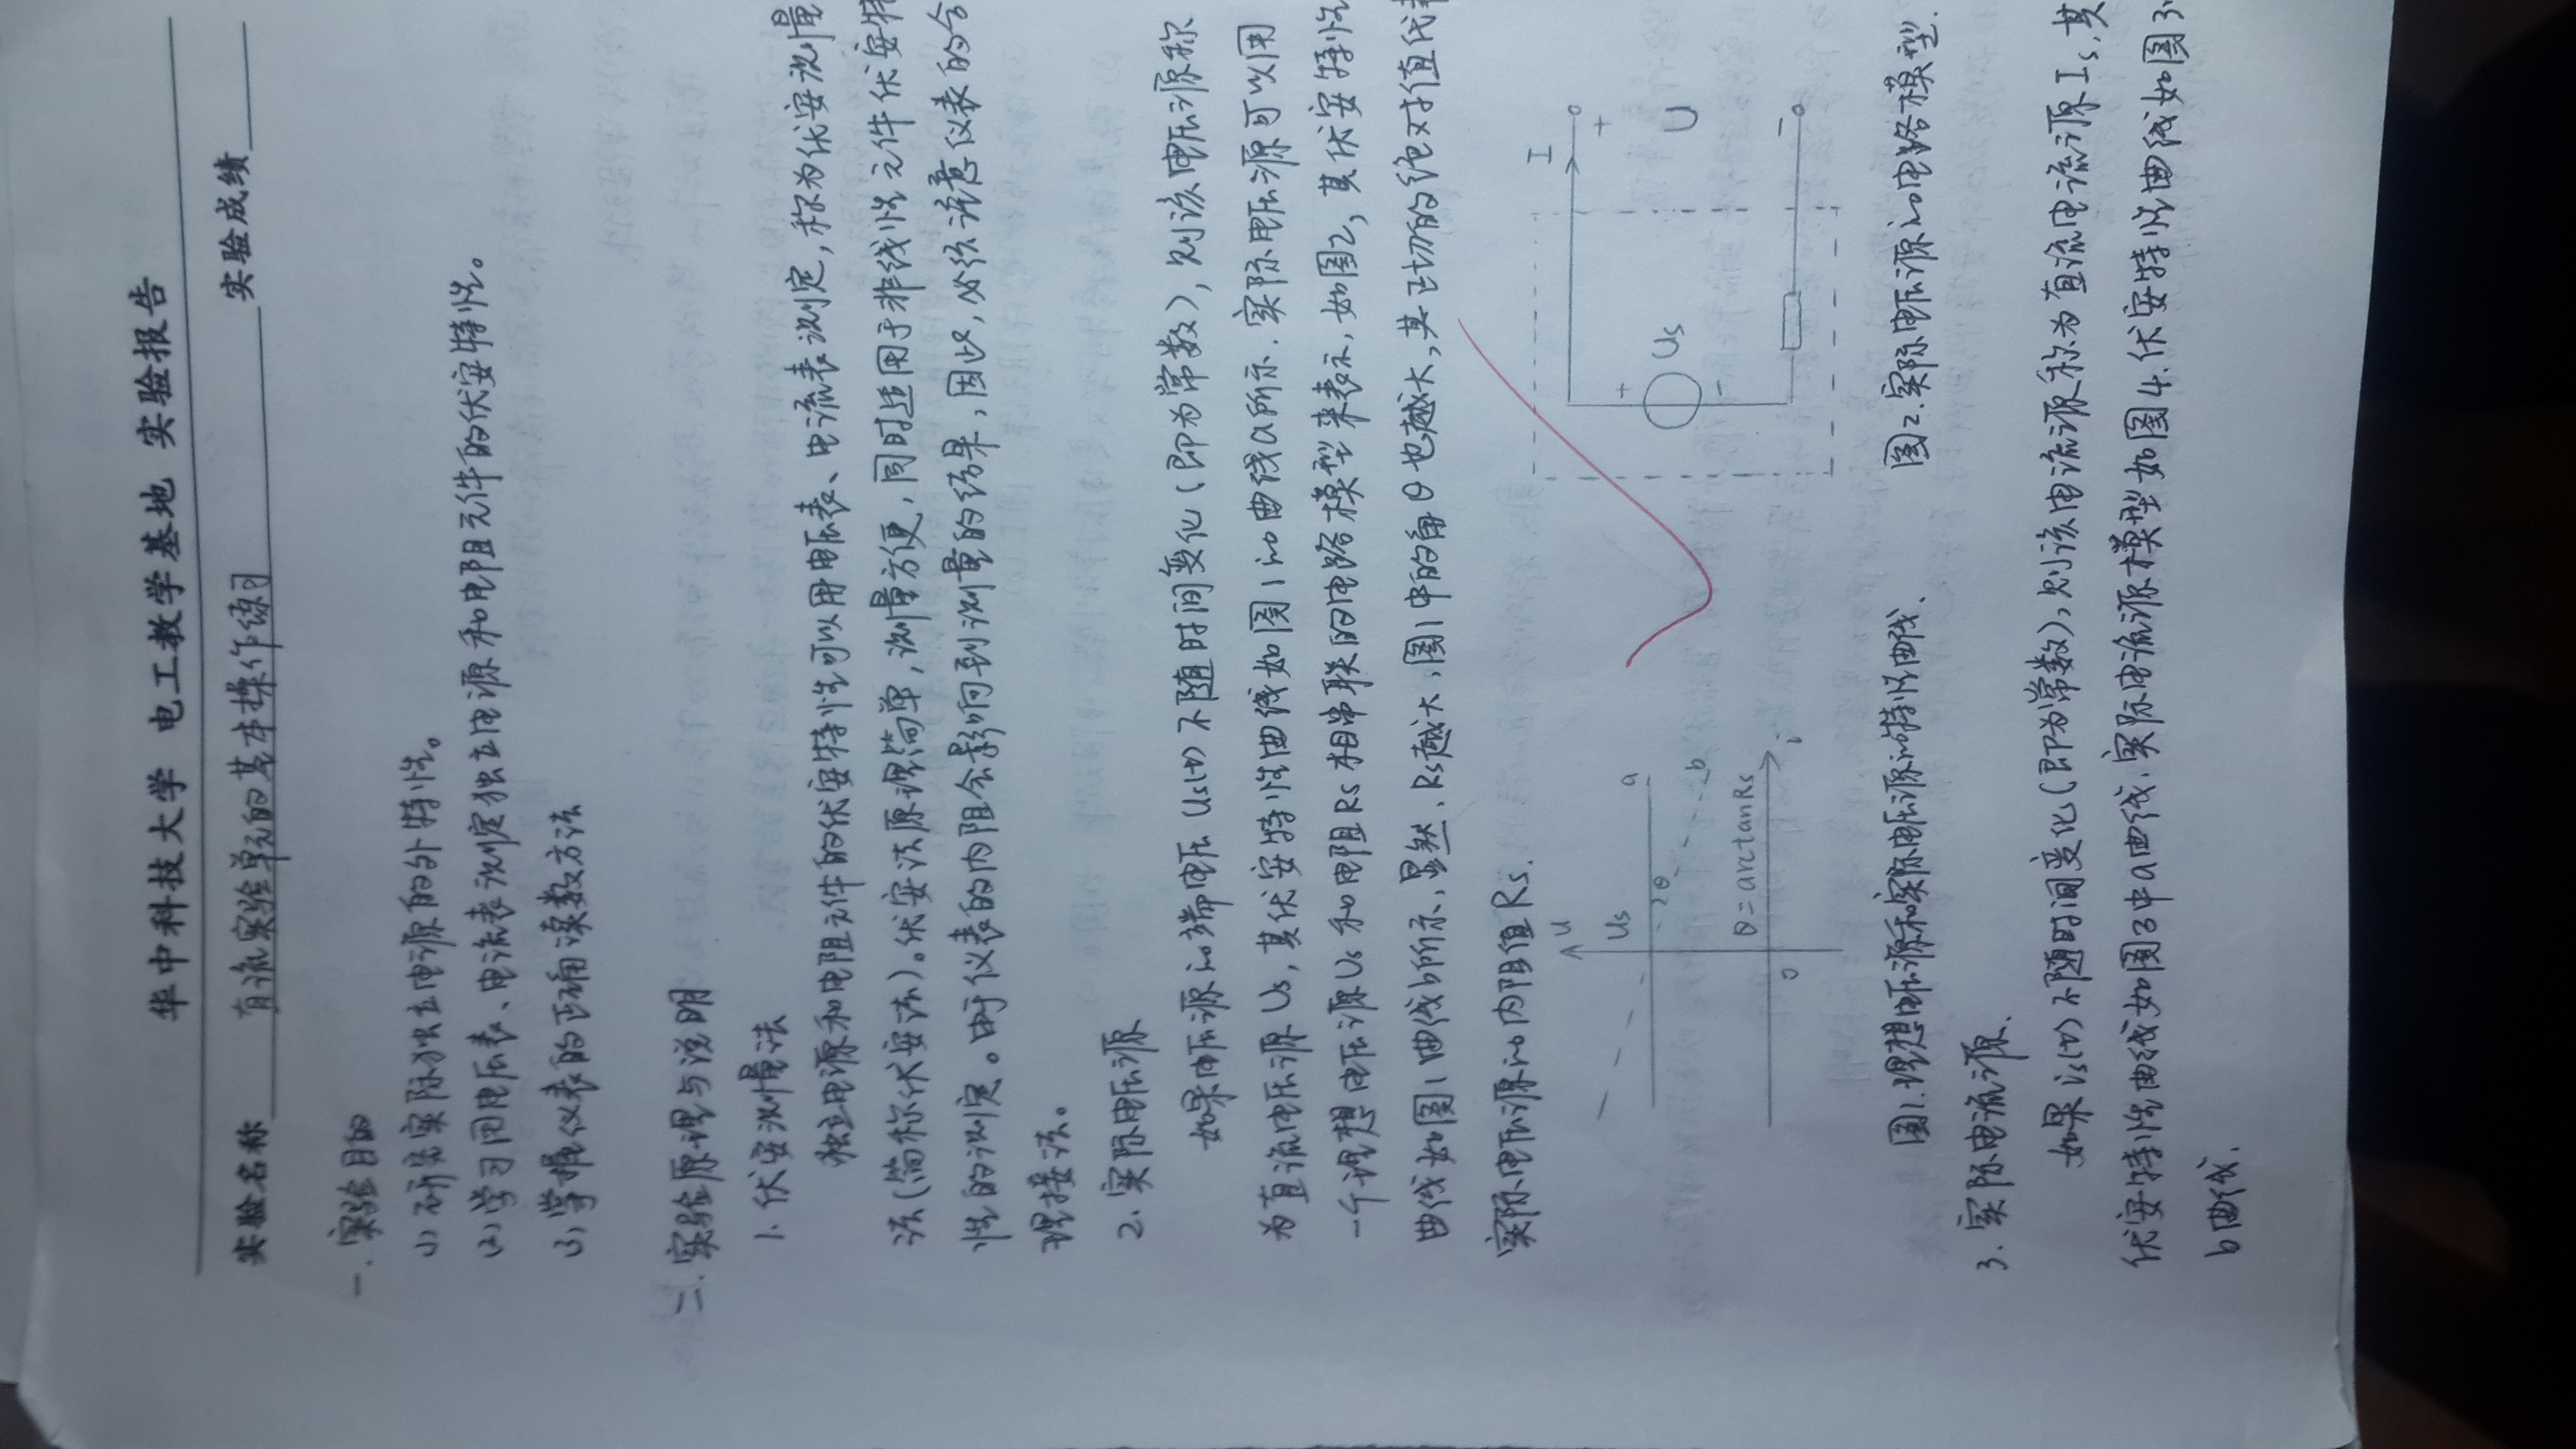 华中科技大学 电工教学基地 实验报告
实验名称 直流实验单元的基本操作练习 实验成绩
一. 实验目的
(1) 研究实际独立电源的外特性。
(2) 学习用电压表、电流表测定独立电源和电阻元件的伏安特性。
(3) 掌握仪表的正确读数方法
二. 实验原理与说明
1. 伏安测量法
独立电源和电阻元件的伏安特性可以用电压表、电流表测定, 称为伏安测量
法(简称伏安法)。伏安法原理简单, 测量方便, 同时适用于非线性元件伏安特
性的测定。由于仪表的内阻会影响到测量的结果, 因此, 必须注意仪表的合
理接法。
2. 实际电压源
如果电压源的端电压 Us(t) 不随时间变化 (即为常数), 则该电压源称
为直流电压源 Us, 其伏安特性曲线如图1的曲线a所示. 实际电压源可以用
一个理想电压源Us和电阻Rs相串联的电路模型来表示, 如图2, 其伏安特性
曲线如图1曲线b所示, 显然, Rs越大, 图1中的角θ也越大, 其正切的绝对值代表
实际电压源的内阻值Rs.
u
Us
a
θ
b
θ=arctanRs
0
i
I
+
+
Us
U
-
-
图1. 理想电压源和实际电压源的特性曲线.
图2. 实际电压源的电路模型.
3. 实际电流源.
如果is(t)不随时间变化(即为常数), 则该电流源称为直流电流源Is, 其
伏安特性曲线如图3中a曲线. 实际电流源模型如图4. 伏安特性曲线如图3
b曲线.